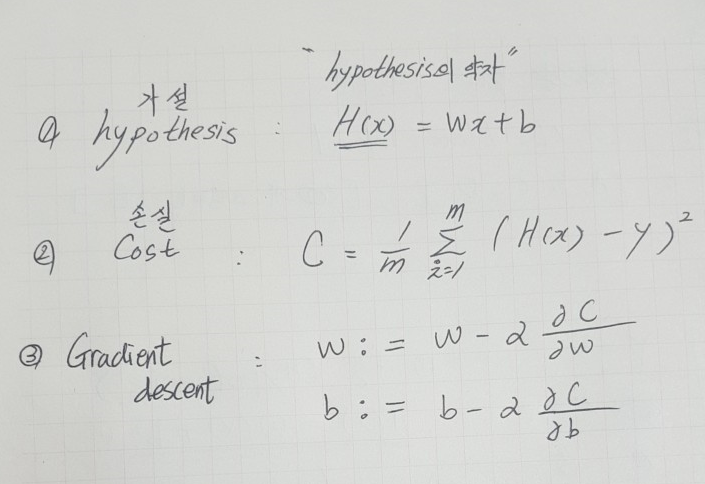 "hypothesis의 약자"
가설
① hypothesis : H(x) = Wx + b
손실
② Cost : C = 1/m Σ i=1 m (H(x) - y)²
③ Gradient descent : w := w - α ∂C/∂w
b := b - α ∂C/∂b